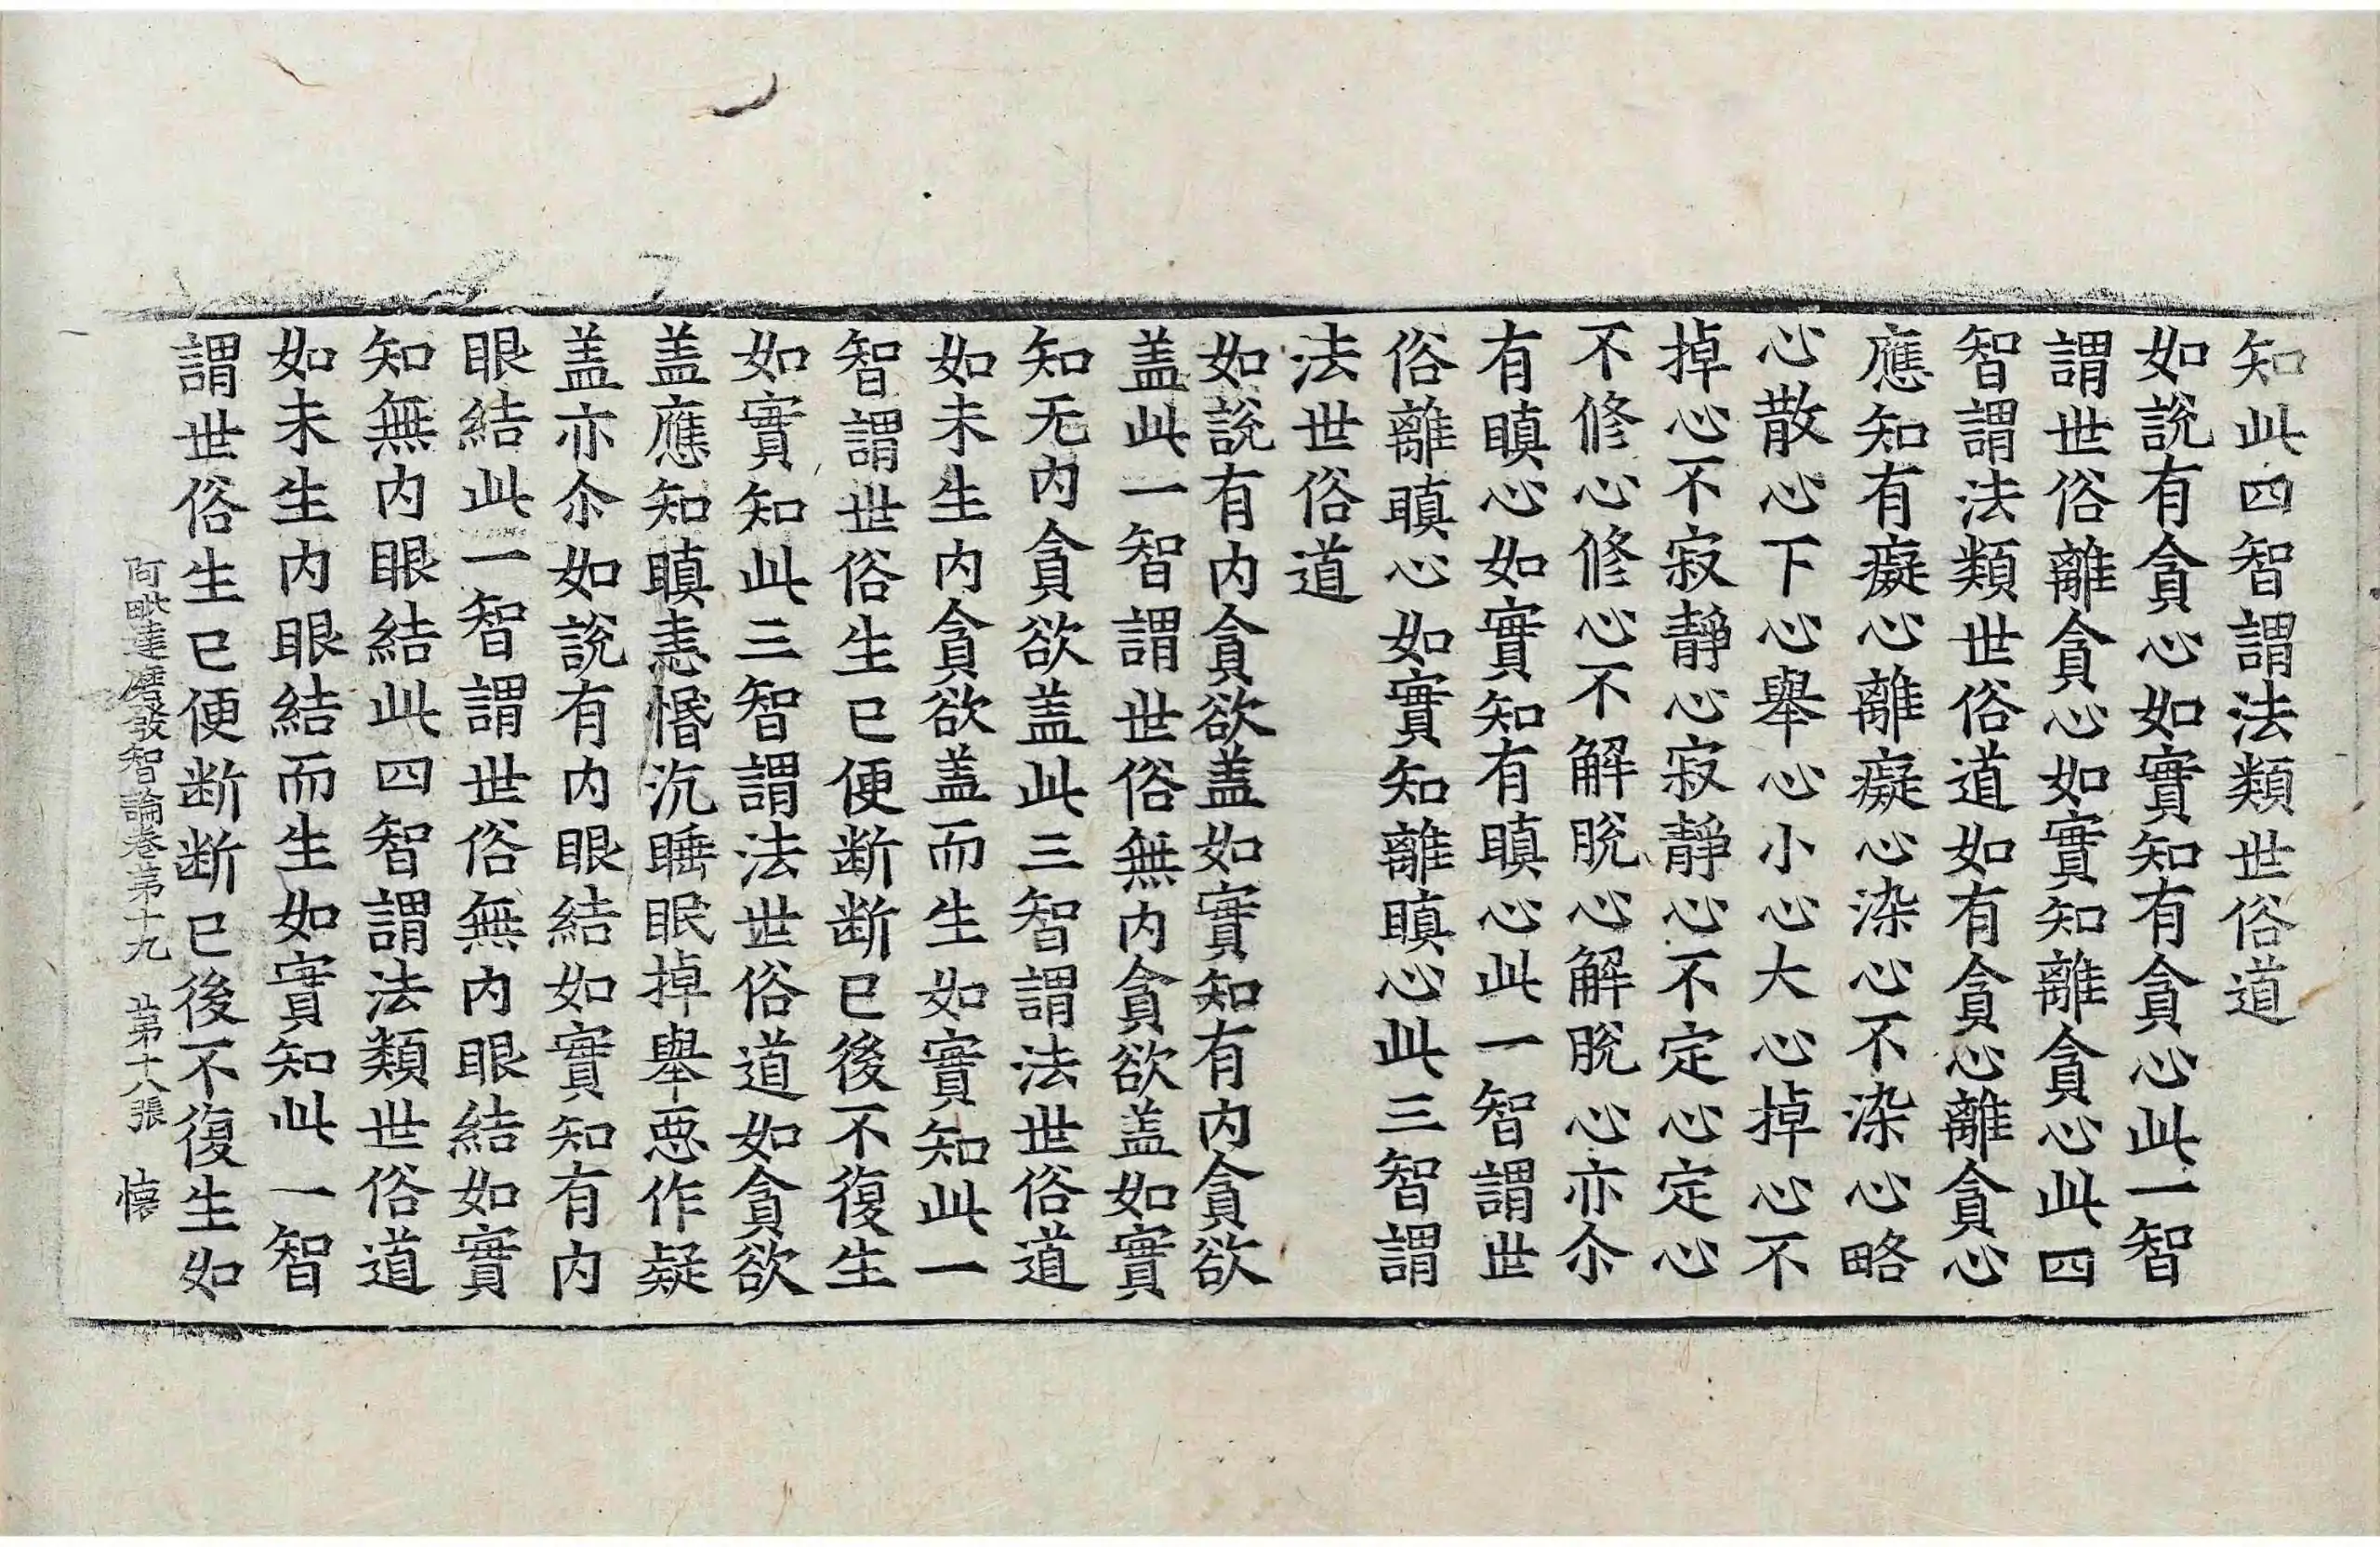 知此四智謂法類世俗道
如說有貪心如實知有貪心此一智
謂世俗離貪心如實知離貪心此四
智謂法類世俗道如有貪心離貪心
應知有癡心離癡心染心不染心略
心散心下心舉心小心大心掉心不
掉心不寂靜心寂靜心不定心定心
不修心修心不解脫心解脫心亦尒
有瞋心如實知有瞋心此一智謂世
俗離瞋心如實知離瞋心此三智謂
法世俗道
如說有內貪欲盖如實知有內貪欲
盖此一智謂世俗無內貪欲盖如實
知无內貪欲盖此三智謂法世俗道
如未生內貪欲盖而生如實知此一
智謂世俗生已便断断已後不復生
如實知此三智謂法世俗道如貪欲
盖應知瞋恚惛沉睡眠掉舉惡作疑
盖亦尒如說有內眼結如實知有內
眼結此一智謂世俗無內眼結如實
知無內眼結此四智謂法類世俗道
如未生內眼結而生如實知此一智
謂世俗生已便断断已後不復生如
阿毗達磨發智論卷第十九 第十八張